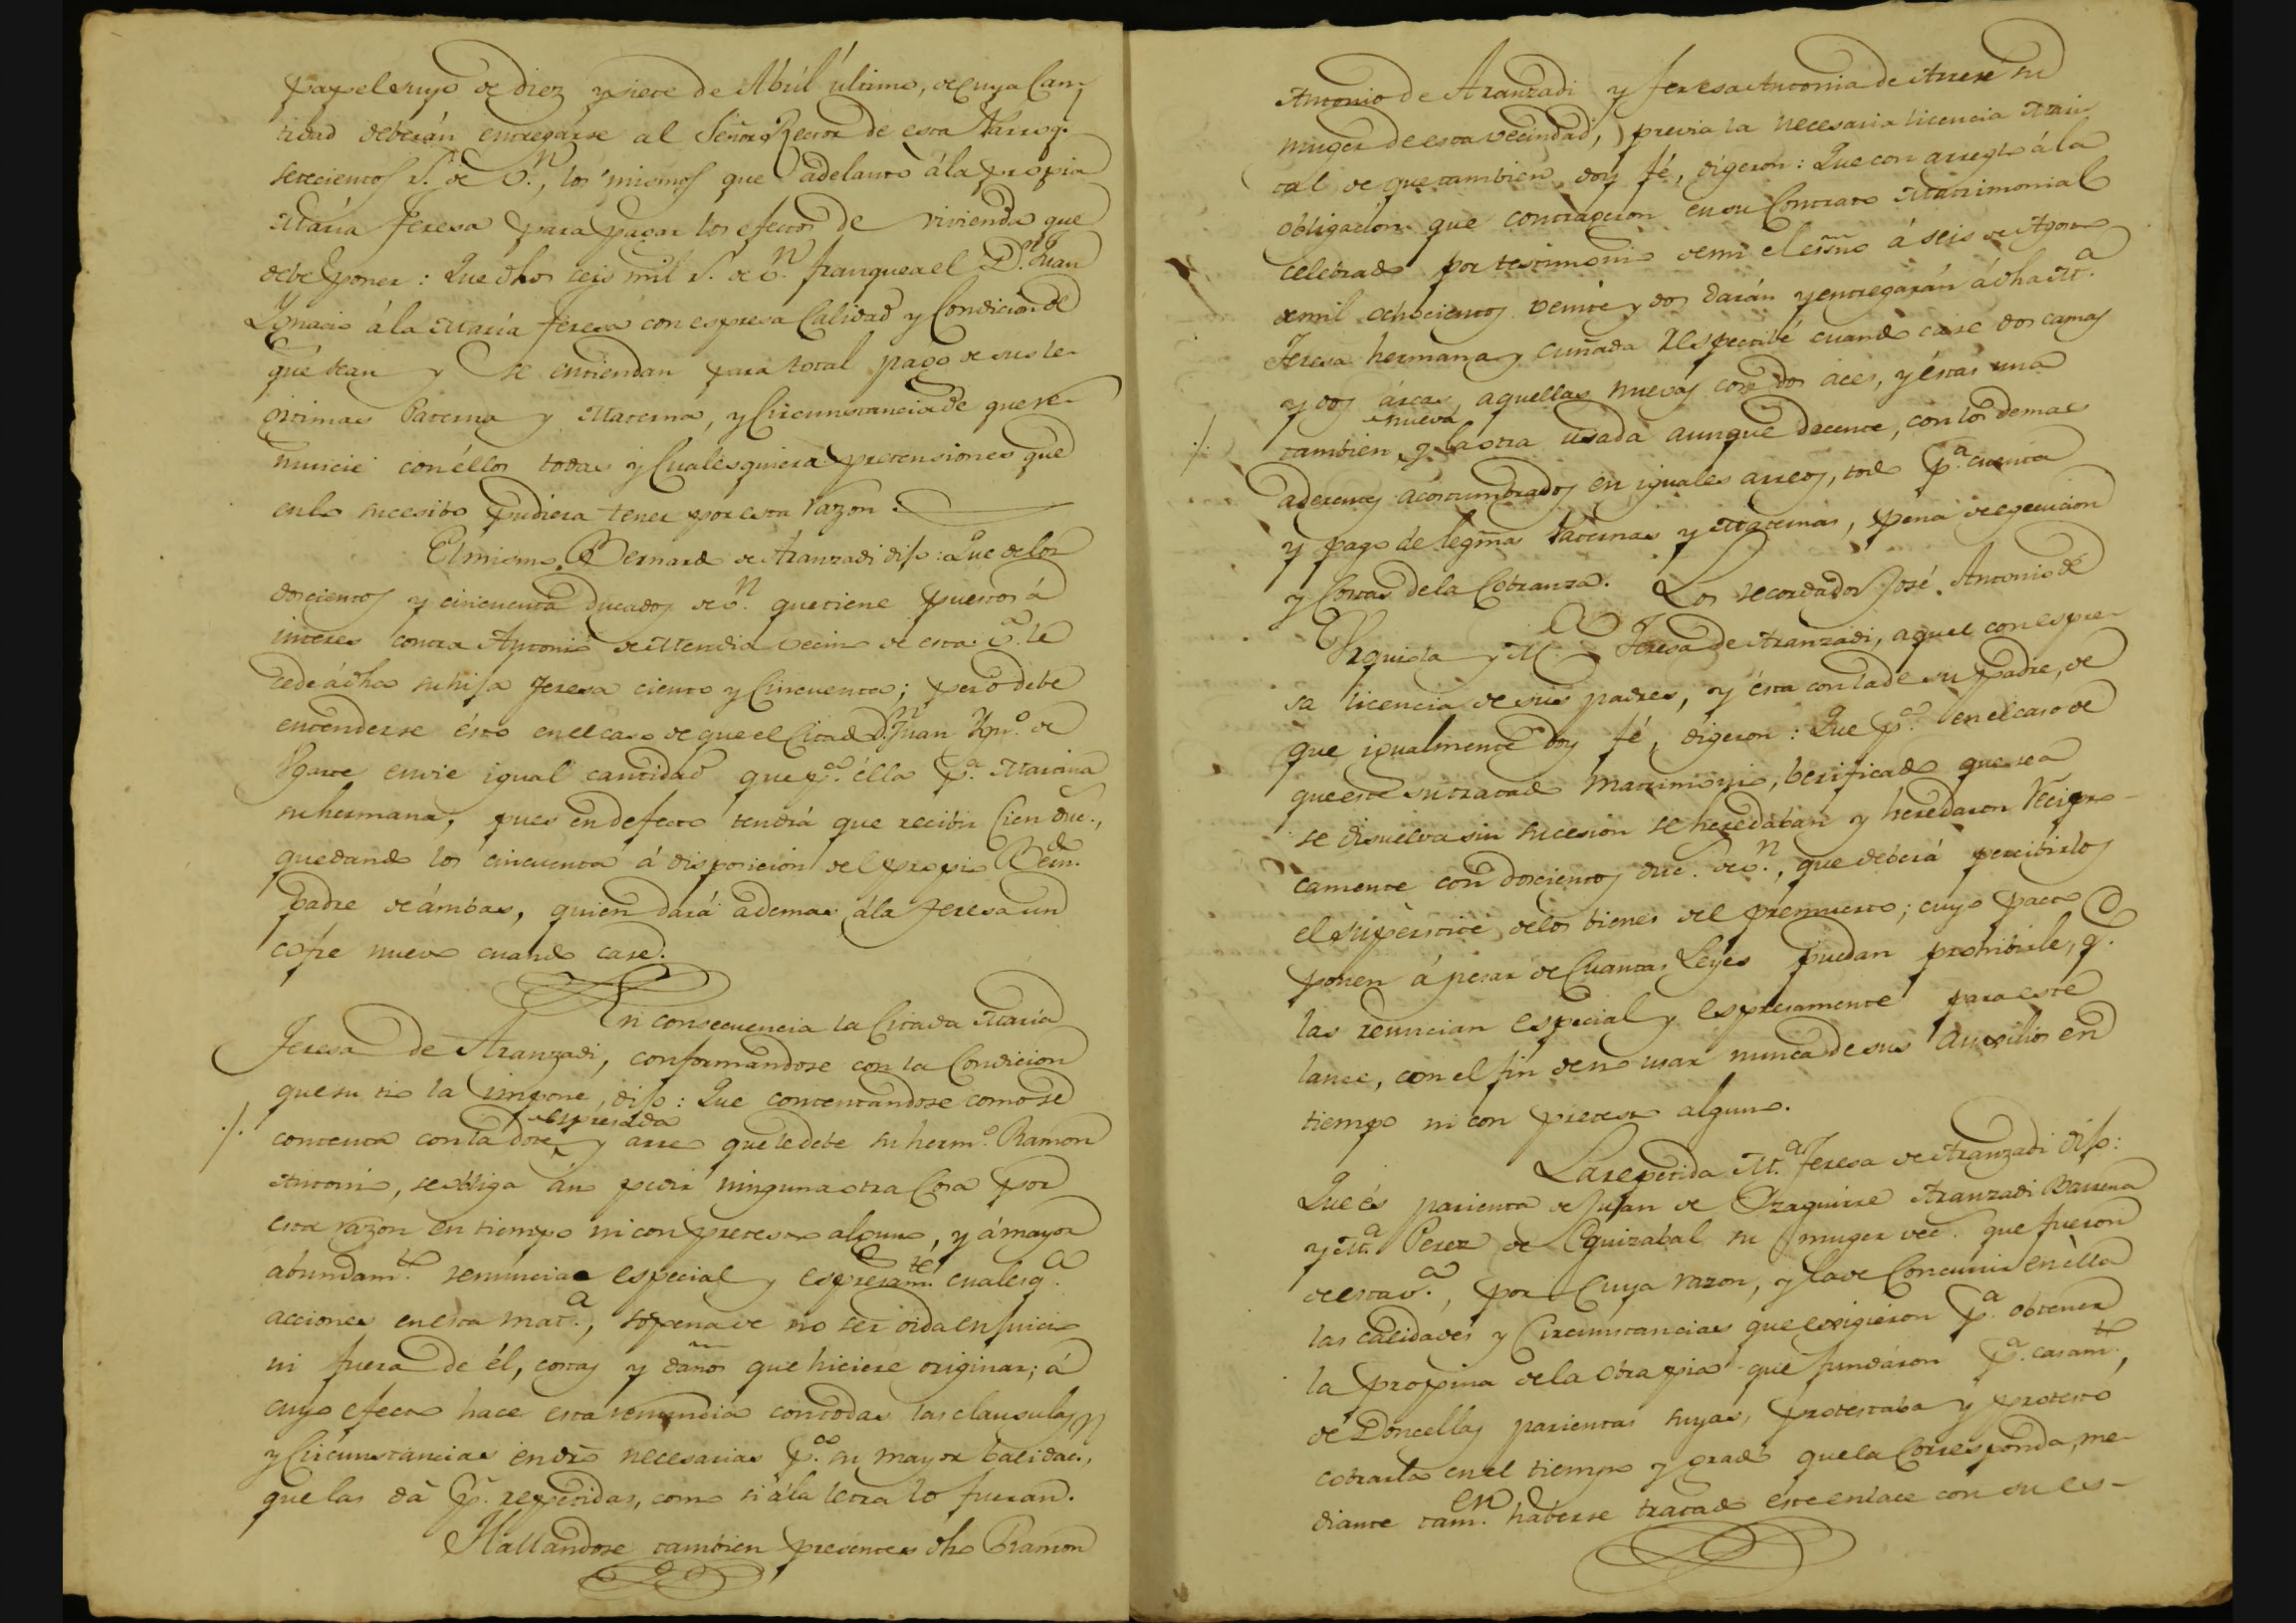 papel suyo de diez y siete de Abril último, de cuya Can-
tidad deberán entregarse al Señor Rector de esta Parroq.
setecientos r.s de v.n, los mismos que adelantó á la propia
María Teresa para pagar los efectos de vivienda que
debe poner: Que dhos seis mil r.s de v.n franquea el D.n Juan
Ygnacio á la María Teresa con espresa Calidad y Condicion de
que sean y se entiendan para total pago de sus le-
gitimas Paterna y Materna, y Circunstancia de que re-
nuncie con éllos todas y Cualesquiera pretensiones que
en lo sucesibo pudiera tener por esta razon.
El mismo Bernardo de Aranzadi dijo: Que de los
doscientos y cincuenta ducados de v.n que tiene puestos á
interes contra Antonio de Mendia vecino de esta v.a le
cede á dha su hija Teresa ciento y Cincuenta; pero debe
entenderse ésto en el caso de que el Citado D.n Juan Ygn.o de
Ygarte envie igual cantidad que p.a élla p.a Maicina
su hermana, pues en defecto tendrá que recibir Cien duc.,
quedando los cincuenta á disposicion del propio Bern.do
padre de ámbas, quien dará ademas á la Teresa un
cofre nuevo cuando case.
En consecuencia la Citada María
Teresa de Aranzadi, conformandose con la Condicion
que su tio la impone, dijo: Que contentandose como se
contenta con la dote espresada y arreo que le debe su herm.o Ramon
Antonio, se obliga á no pedir ninguna otra Cosa por
esta razon en tiempo ni con pretesto alguno, y á mayor
abundam.to renuncia especial y espresam.te cualesq.a
acciones en esta mat.a, sopena de no ser oida en juicio
ni fuera de él, costas y daños que hiciere originar; á
cuyo efecto hace esta renuncia con todas las clausulas
y Circunstancias en dro necesarias p.a su mayor balidac.n,
que las dá p.r repetidas, como si á la letra lo fueran.
Hallandose tambien presentes dho Ramon
Antonio de Aranzadi y Teresa Antonia de Arrese su
muger de esta vecindad, previa la necesaria licencia Mari-
tal de que tambien doy fé, digeron: Que con arreglo á la
obligacion que contrageron en su Contrato Matrimonial
celebrado por testimonio de mi el esno á seis de Agosto
de mil ochocientos veinte y dos darán y entregarán á dha M.a
Teresa hermana y cuñada respectibé cuando case dos camas
y dos árcas, aquellas nuevas con dos áces, y éstas una
tambien nueva y la otra usada aunque decente, con los demas
aderentes acostumbrados en iguales arreos, todo p.a cuenta
y pago de legmas Paternas y Maternas, pena de egecucion
y Costas de la Cobranza. Los recordados José Antonio de
Urquiola y M.a Teresa de Aranzadi, aquel con espre-
sa licencia de sus padres, y ésta con la de su padre, de
que igualmente doy fé, digeron: Que p.a en el caso de
que este su tratado Matrimonio, berificado que sea
se disuelva sin sucesion se heredaban y heredaron recipro-
camente con doscientos duc. de v.n, que deberá percibirlos
el supérstite de los bienes del premuerto; cuyo pacto
ponen á pesar de Cuantas Leyes puedan prohibirle, q.e
las renuncian especial y espresamente para este
lance, con el fin de no usar nunca de sus auxilios en
tiempo ni con pretesto alguno.
La repetida M.a Teresa de Aranzadi dijo:
Que és parienta de Juan de Yzaguirre Aranzadi Barrena
y M.a Perez de Eguizabal su muger vec. que fueron
de esta v.a, por Cuya razon, y la de Concurrir en élla
las calidades y Circunstancias que exigieron p.a obtener
la propina de la Obra pia que fundáron p.a casam.to
de Doncellas parientas suyas, protestaba y protestó
cobrarla en el tiempo y grado que la Corresponda, me-
diante tam.en háberse tratado este enlace con su es-